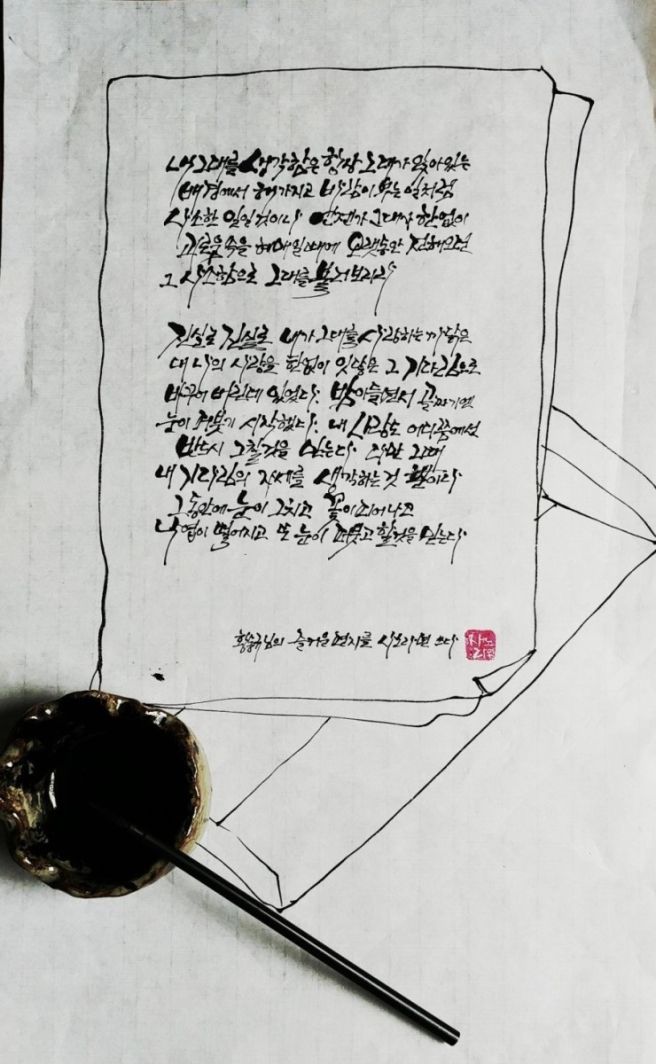 내 그대를 생각함은 항상 그대가 앉아있는
배경에서 해가 지고 바람이 부는 일처럼
사소한 일일 것이나 언젠가 그대가 한없이
괴로움 속을 헤매일 때에 오랫동안 전해오던
그 사소함으로 그대를 불러보리라
진실로 진실로 내가 그대를 사랑하는 까닭은
내 나의 사랑을 한없이 잇닿은 그 기다림으로
바꾸어 버린데 있었다. 밤이 들면서 골짜기엔
눈이 퍼붓기 시작했다. 내 사랑도 어디쯤에선
반드시 그칠것을 믿는다. 다만 그때
내 기다림의 자세를 생각하는 것 뿐이다.
그 동안에 눈이 그치고 꽃이 피어나고
낙엽이 떨어지고 또 눈이 퍼붓고 할것을 믿는다.
황동규님의 즐거운 편지를 사노라면 쓰다.